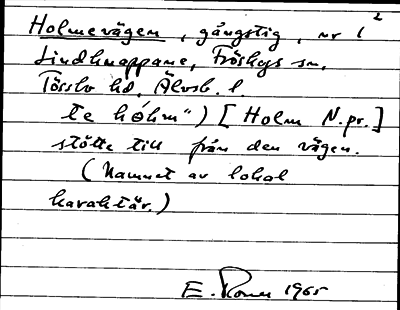 Holmevägen, gångstig, nr 1²
Lindknappane, Fröskogs sn,
Tössbo hd, Älvsb. l.
te hólm") [Holm N.pr.]
stötte till från den vägen.
(Namnet av lokal
karaktär.)
E. 1965